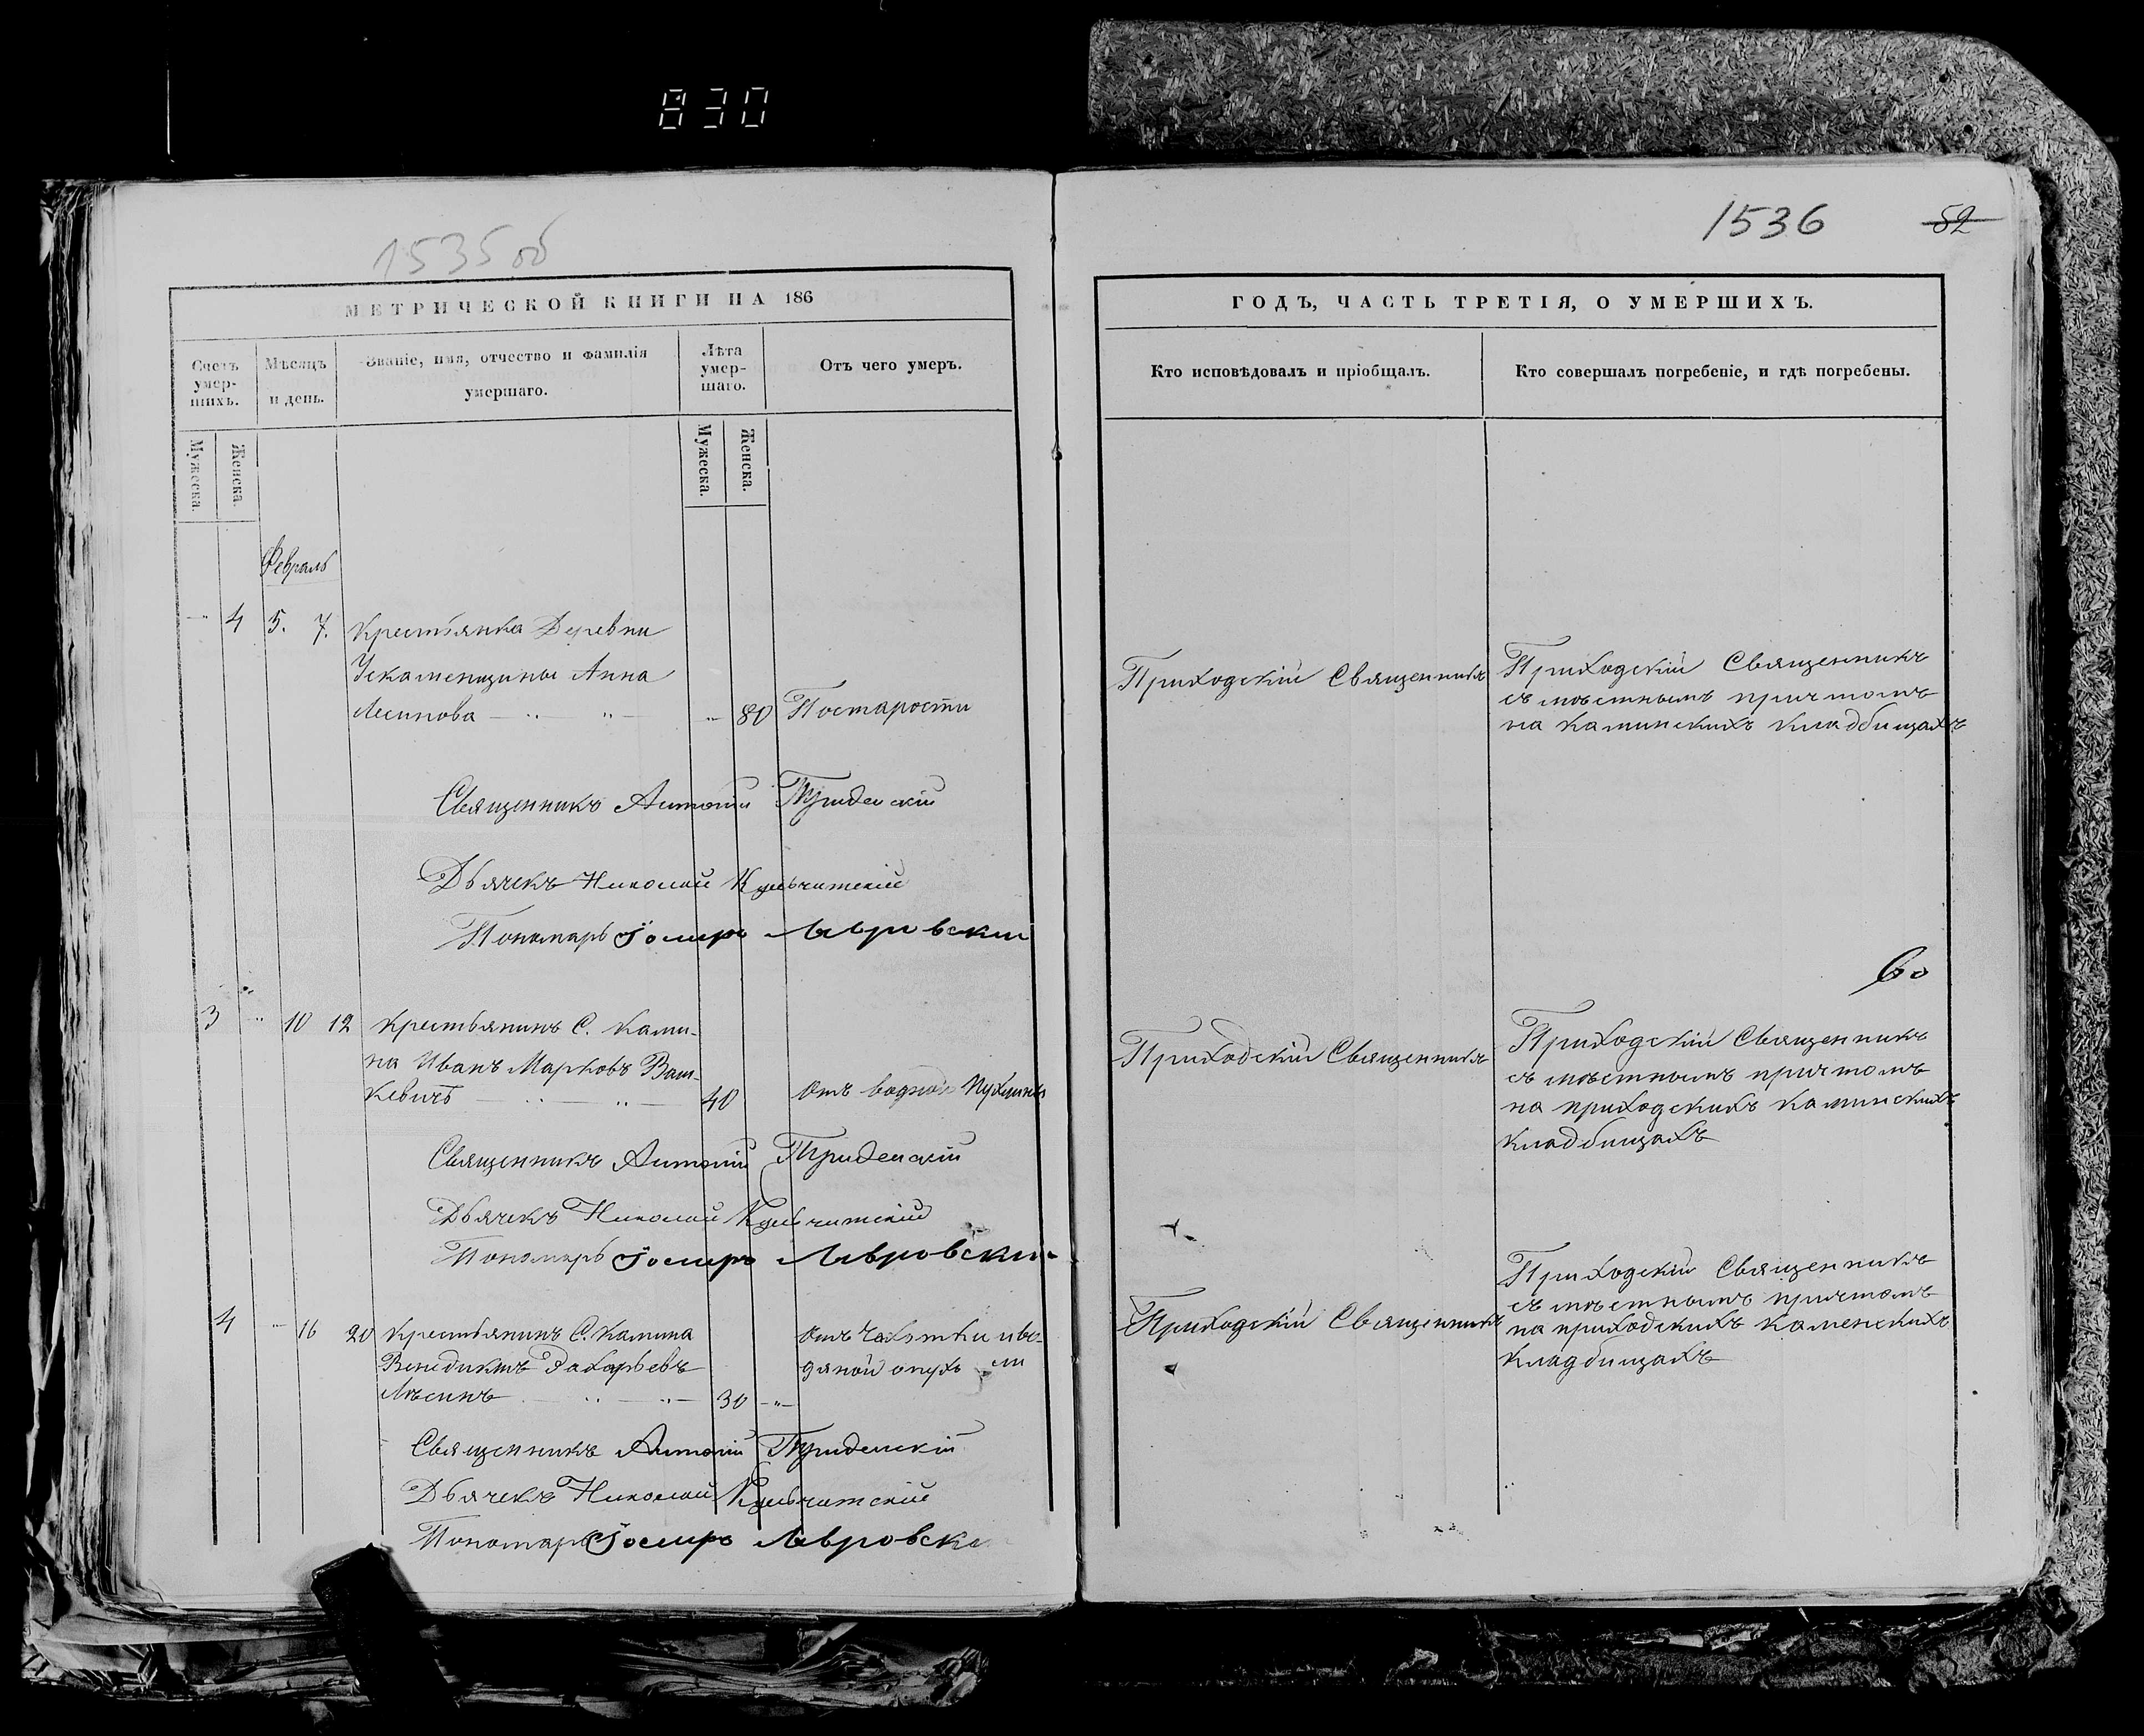 830
1535 об
МЕТРИЧЕСКОЙ КНИГИ НА 186
Счетъ умер-шихъ.
Мѣсяцъ и день.
Званіе, имя, отчество и фамилія умершаго.
Лѣта умер-шаго.
Отъ чего умеръ.
Мужеска.
Женска.
Мужеска.
Женска.
Февраль
4 5. 7. Крестьянка Деревни
Ускаменщины Анна
Лесинова 80 Постарости
Священникъ Антоній
Дьячекъ Николай
Пономарь Іосифъ Лавровскій
3 10 12 Крестьянинъ С. Ками-
на Иванъ Марковъ Ваш-
кевичъ 40 Отъ водной Пухлины
Священникъ Антоній
Дьячекъ Николай
Пономарь Іосифъ Лавровскій
4 16 20 Крестьянинъ С. Камина Отъ Чахотки и во-
Венедиктъ Захарьевъ дяной опухо ли
Лѣсинъ 30
Священникъ Антоній
Дьячекъ Николай
Пономарь Іосифъ Лавровск
1536 52
ГОДЪ, ЧАСТЬ ТРЕТІЯ, О УМЕРШИХЪ.
Кто исповѣдовалъ и пріобщалъ.
Кто совершалъ погребеніе, и гдѣ погребены.
Приходскій Священникъ
Приходскій Священникъ
съ мѣстнымъ причтомъ
на Каминскихъ кладбищахъ
Приходскій Священникъ
Приходскій Священникъ
съ мѣстнымъ причтомъ
на приходскихъ Каминскихъ
кладбищахъ
Приходскій Священникъ
Приходскій Священникъ
съ мѣстнымъ причтомъ
на приходскихъ Каменскихъ
кладбищахъ